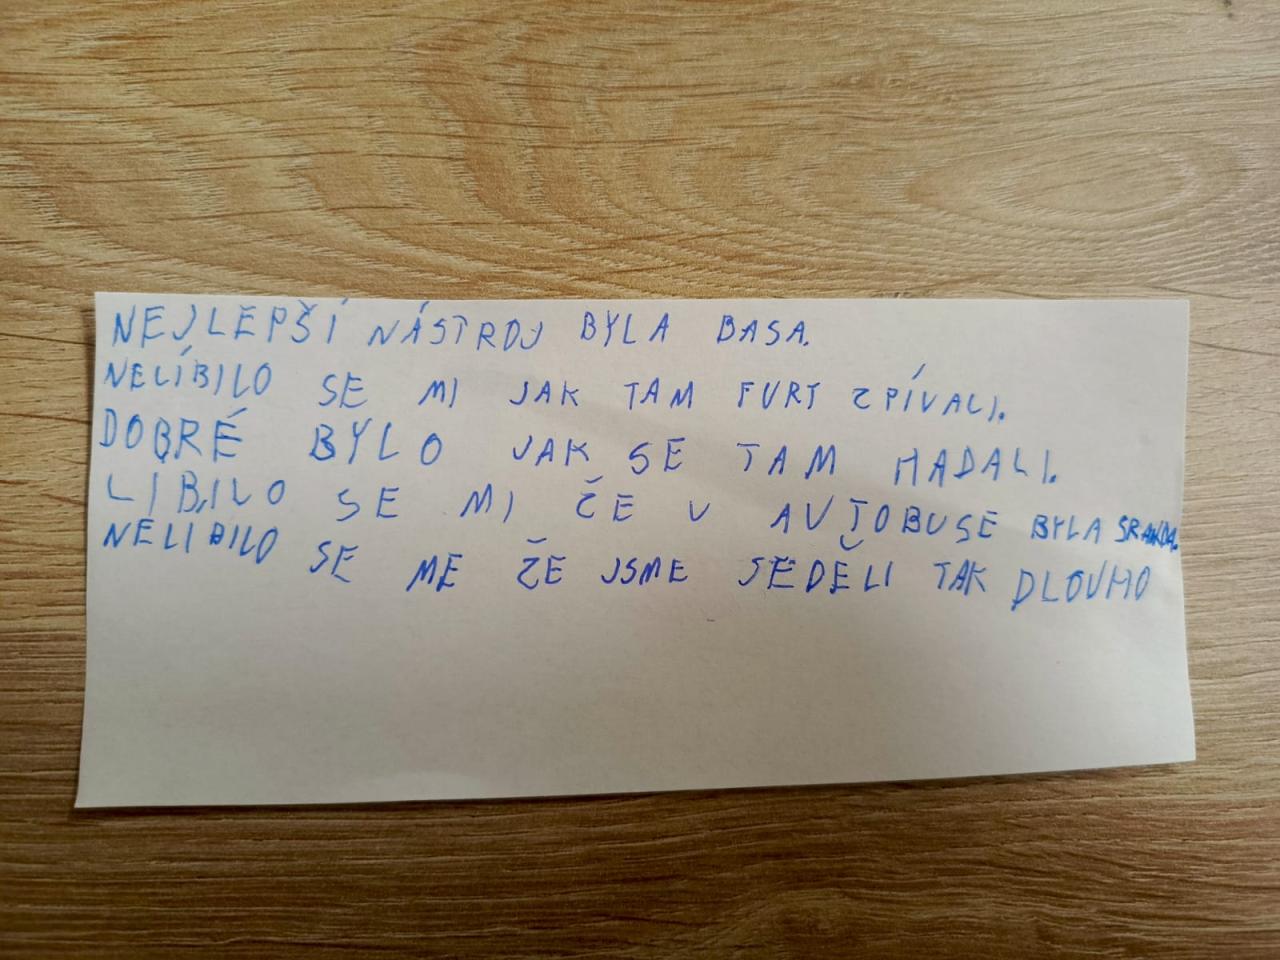 NEJLEPŠÍ NÁSTROJ BYLA BASA.
NELÍBILO SE MI JAK TAM FURT ZPÍVALI.
DOBRÉ BYLO JAK SE TAM HADALI.
LIBILO SE MI ŽE V AVTOBUSE BYLA SRANDA.
NELIBILO SE ME ŽE JSME SEDĚLI TAK DLOUHO